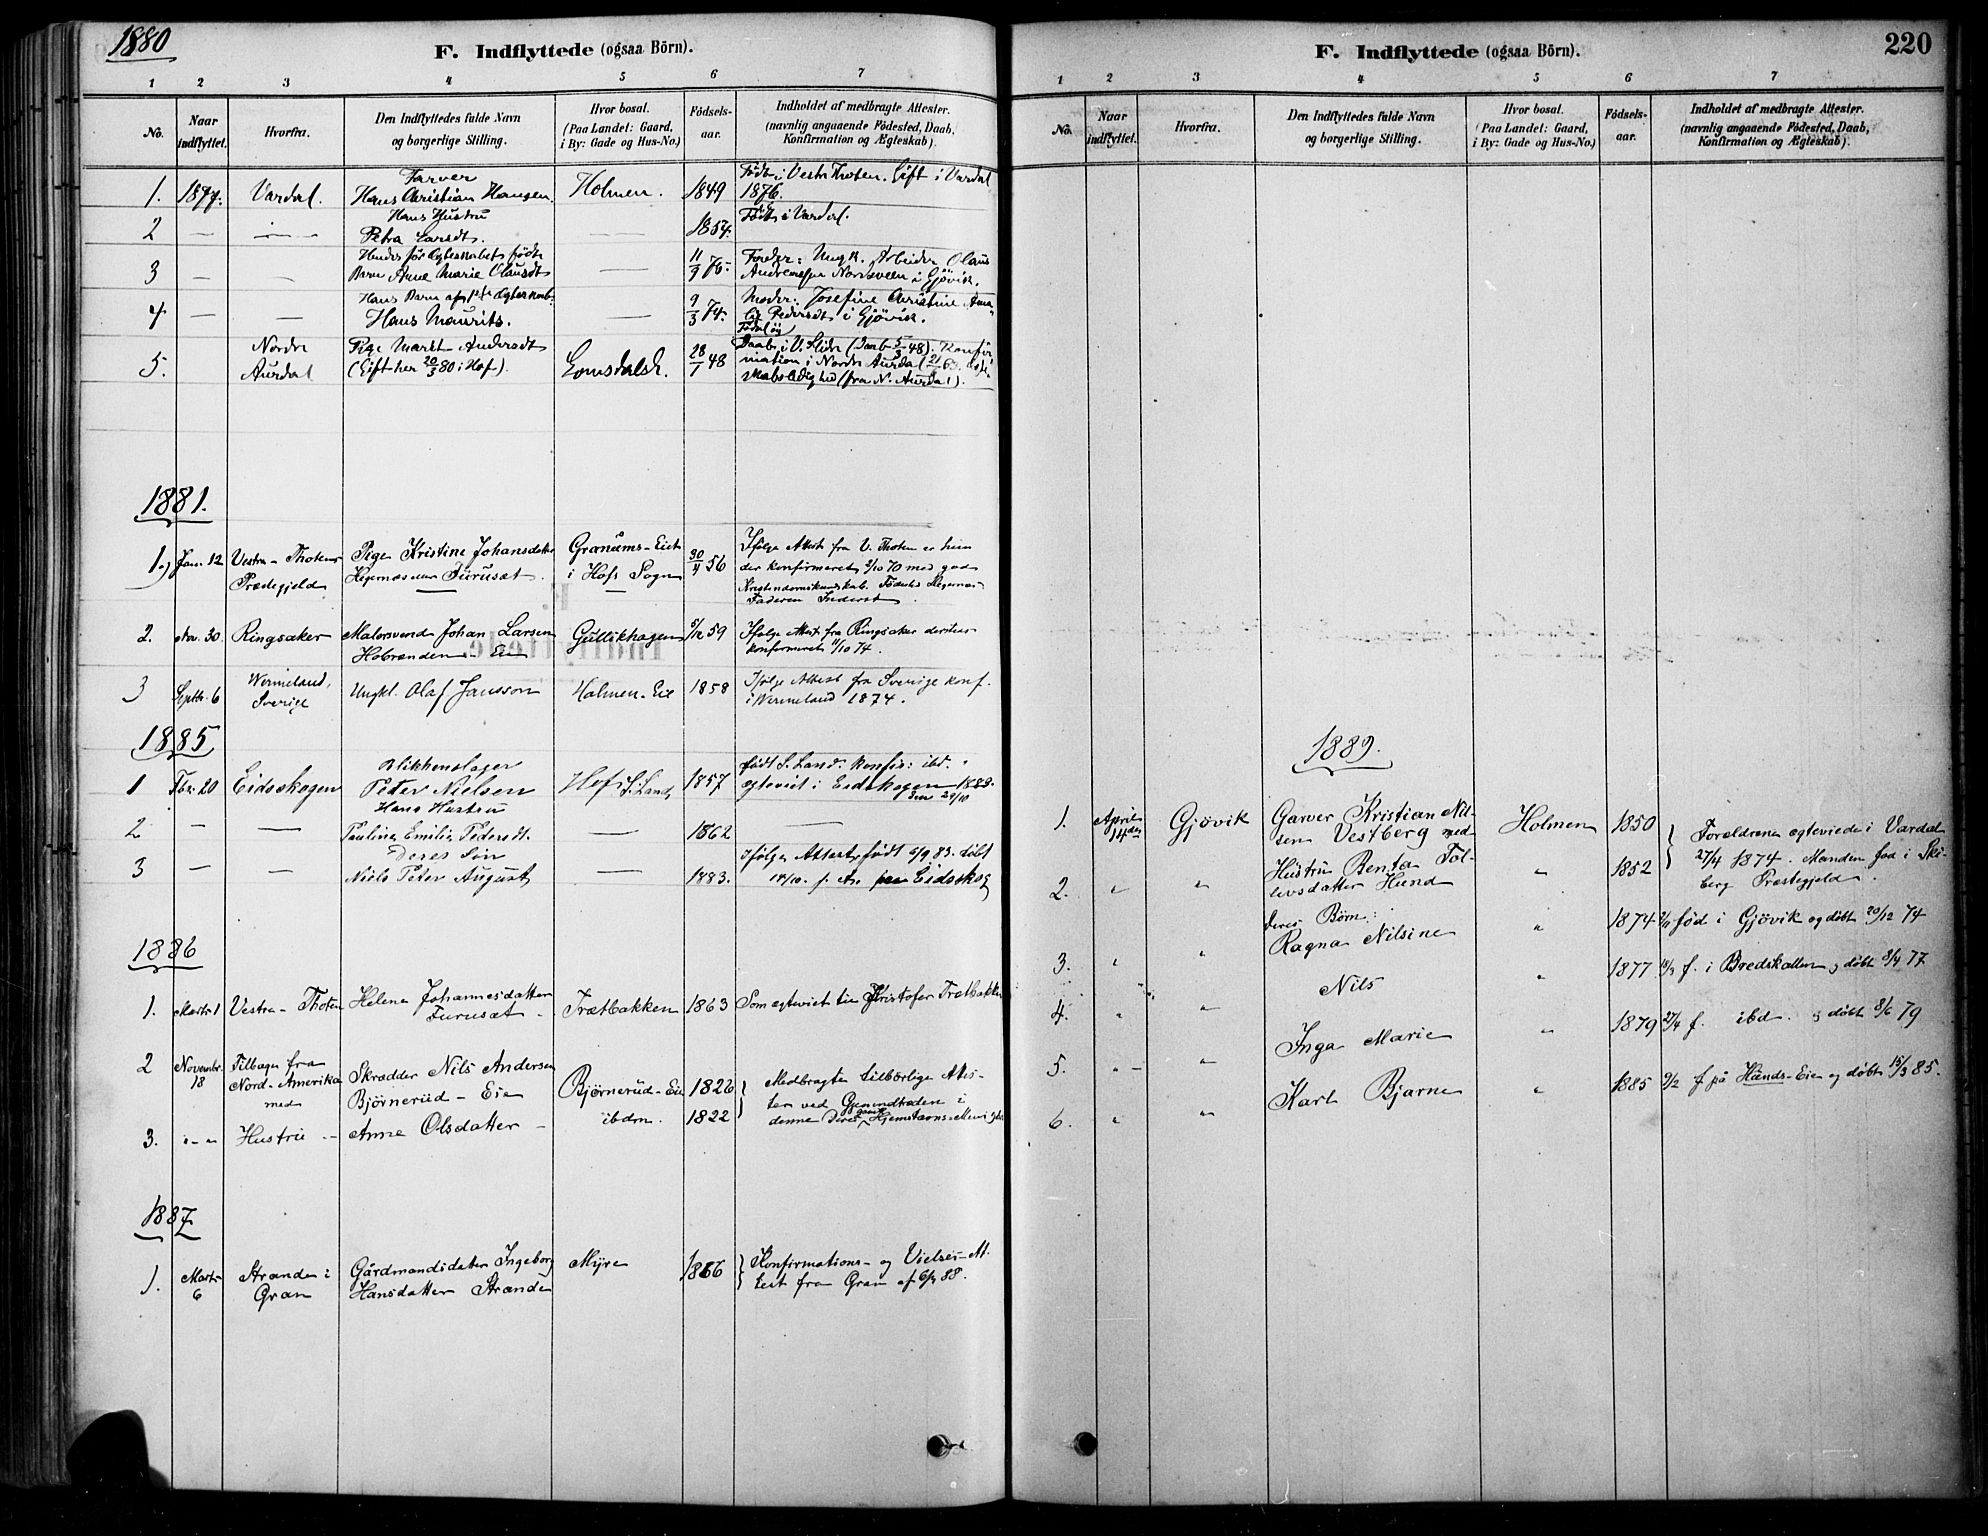 1880
F. Indflyttede (ogsaa Börn).
1 2 3 4 5 6 7
No.
Naar indflyttet.
Hvorfra.
Den Indflyttedes fulde Navn
og borgerlige Stilling.
Hvor bosat.
(Paa Landet: Gaard,
i By: Gade og Hus-No.)
Fødsels-
aar.
Indholdet af medbragte Attester.
(navnlig angaaende Fødested, Daab,
Konfirmation og Ægteskab).
Farver
1. 1877. Vardal. Hans Christian Hansen. Holmen. 1849 Født i Vestre Thoten. Gift i Vardal
1876.
Hans Hustru
2 — — Petra Larsdt. — 1854. Født i Vardal.
Hendes før Ægteskabet fødte
3 — — Barn Anne Marie Olausdt — 11/9 75. Fader: Ungk. Arbeider Olaus
Andreassen Nordsveen i Gjövik.
Hans Barn før Ægteskab.
4 — — Hans Maurits. — 9/3 74. Moder: Josefine Christine Ama-
lie Pedersdt i Gjövik.
5. Nordre Aurdal Pige Marit Andersdt
(Gift her 20/3 80 i Hof). Lomsdalsh. 28/1 48 Fødsel og
Daab i V. Slidre (Daab 5/3 48). Konfir-
mation i Nordre Aurdal 21/ 63. Ægte-
skabsledighed (fra N. Aurdal).
1881.
1.) Jan. 12 Vestre-Thotens
Præstegjeld Pige Kristine Johansdatter
Hegernæs Furuset. Granums-Eiet
i Hofs Sogn 30/4 56 Ifølge Attest fra V. Thoten er hun
der konfirmeret 2/10 70 med god
Kristendomskundskab. Fødested Hegernæs.
Faderen Inderst.
2. Nov. 30. Ringsaker Malersvend Johan Larsen
Eie Gullikhagen 5/12 59 Ifølge Attest fra Ringsaker dersteds
konfirmeret 11/10 74.
3 Septbr. 6 Wermeland,
Sverige Ungkl. Olaf Jansson Holmen-Eie 1858 Ifølge Attest fra Sverige konf.
i Wermeland 1874.
1885
Blikkenslager
1 Fbr. 20 Eidsskogen Peter Nielsen Hof S. Land 1857 født S. Land. Konfir: ibd.
ægteviet i Eidskogen 1882.
den 29/10
Hans Hustru
2 — — Pauline Emilie Pedersdt. — 1862 —
Deres Søn
3 — — Niels Peter August — 1883. Ifølge Attest født 6/9 83. døbt
14/10. f. A. paa Eidsskog
1886
1. Marts 1 Vestre-Thoten Helene Johannesdatter
Furuset - Trætbakken 1863 Som ægteviet til Kristofer Trætbakken
2 Novembr.
18 Tilbage fra
Nord-Amerika
med Skrædder Nils Andersen
Bjørnerud - Eie Bjørnerud-Eie 1826 Medbragte tilbørlige Attes-
ter ved Gjenindtræden i
3. " - " Hustru - Anne Olsdatter - ibdm. 1822 denne deres gamle Hjemstavns-Menighed
1887
1. Marts
6 Stranden i
Gran Gårdmandsdatter Ingeborg
Hansdatter Stranden Myre 1866 Konfirmations- og Vielses-At-
test fra Gran af 6/2 88.
F. Indflyttede (ogsaa Börn).
220
1 2 3 4 5 6 7
No.
Naar indflyttet.
Hvorfra.
Den Indflyttedes fulde Navn
og borgerlige Stilling.
Hvor bosat.
(Paa Landet: Gaard,
i By: Gade og Hus-No.)
Fødsels-
aar.
Indholdet af medbragte Attester.
(navnlig angaaende Fødested, Daab,
Konfirmation og Ægteskab).
1889.
1. April
14den Gjövik Garver Kristian Nil-
sen Vestberg med Holmen 1850 Forældrene ægteviede i Vardal
27/4 1874. Manden fød i Ski-
berg Præstegjeld.
2. " " Hustru Benta Tol-
levsdatter Hund " 1852
deres Børn:
3. " " Ragna Nilsine " 1874 2/11 fød i Gjövik og døbt 20/12 74
4. " " Nils " 1877 18/3 f. i Bredskallen og døbt 8/4 77
5. " - " Inga Marie " 1879 27/4 f. ibd. og døbt 8/6 79
6. " " Karl Bjarne " 1885 9/2 f på Hunds-Eie og døbt 15/3 85.